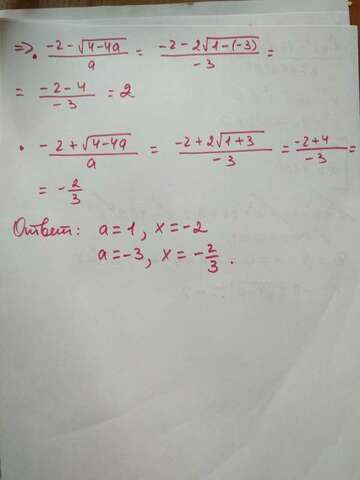 =>. • (-2-√(4-4a))/a = (-2-2√(1-(-3)))/(-3) =
= (-2-4)/(-3) = 2
• (-2+√(4-4a))/a = (-2+2√(1+3))/(-3) = (-2+4)/(-3) =
= -2/3
Ответ: a=1, x=-2
a=-3, x=-2/3.